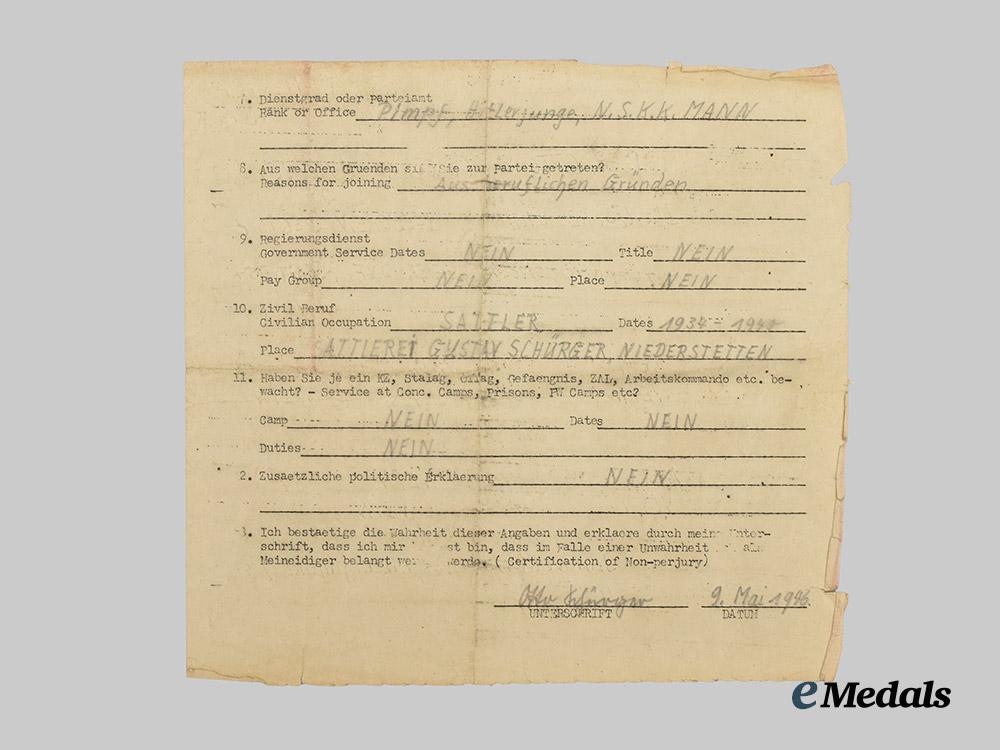 7. Dienstgrad oder Parteiamt
Rank or Office Pimpf, Hitlerjunge, N.S.K.K. MANN
8. Aus welchen Gruenden sind Sie zur Partei getreten?
Reasons for joining Aus beruflichen Gründen
9. Regierungsdienst
Government Service Dates NEIN Title NEIN
Pay Group NEIN Place NEIN
10. Zivil Beruf
Civilian Occupation SATTLER Dates 1934 -
Place ATTLEREI GUSTAV SCHÜRGER, NIEDERSTETTEN
11. Haben Sie je ein KZ, Stalag, Oflag, Gefaengnis, ZAL, Arbeitskommando etc. be-
wacht? - Service at Conc. Camps, Prisons, PW Camps etc?
Camp NEIN Dates NEIN
Duties NEIN
2. Zusaetzliche politische Erklaerung NEIN
3. Ich bestaetige die Wahrheit dieser Angaben und erklaere durch meine Unter-
schrift, dass ich mir st bin, dass im Falle einer Unwahrheit als
Meineidiger belangt werde. ( Certification of Non-perjury)
Otto Schürger 9. Mai 1946.
UNTERSCHRIFT DATUM
eMedals